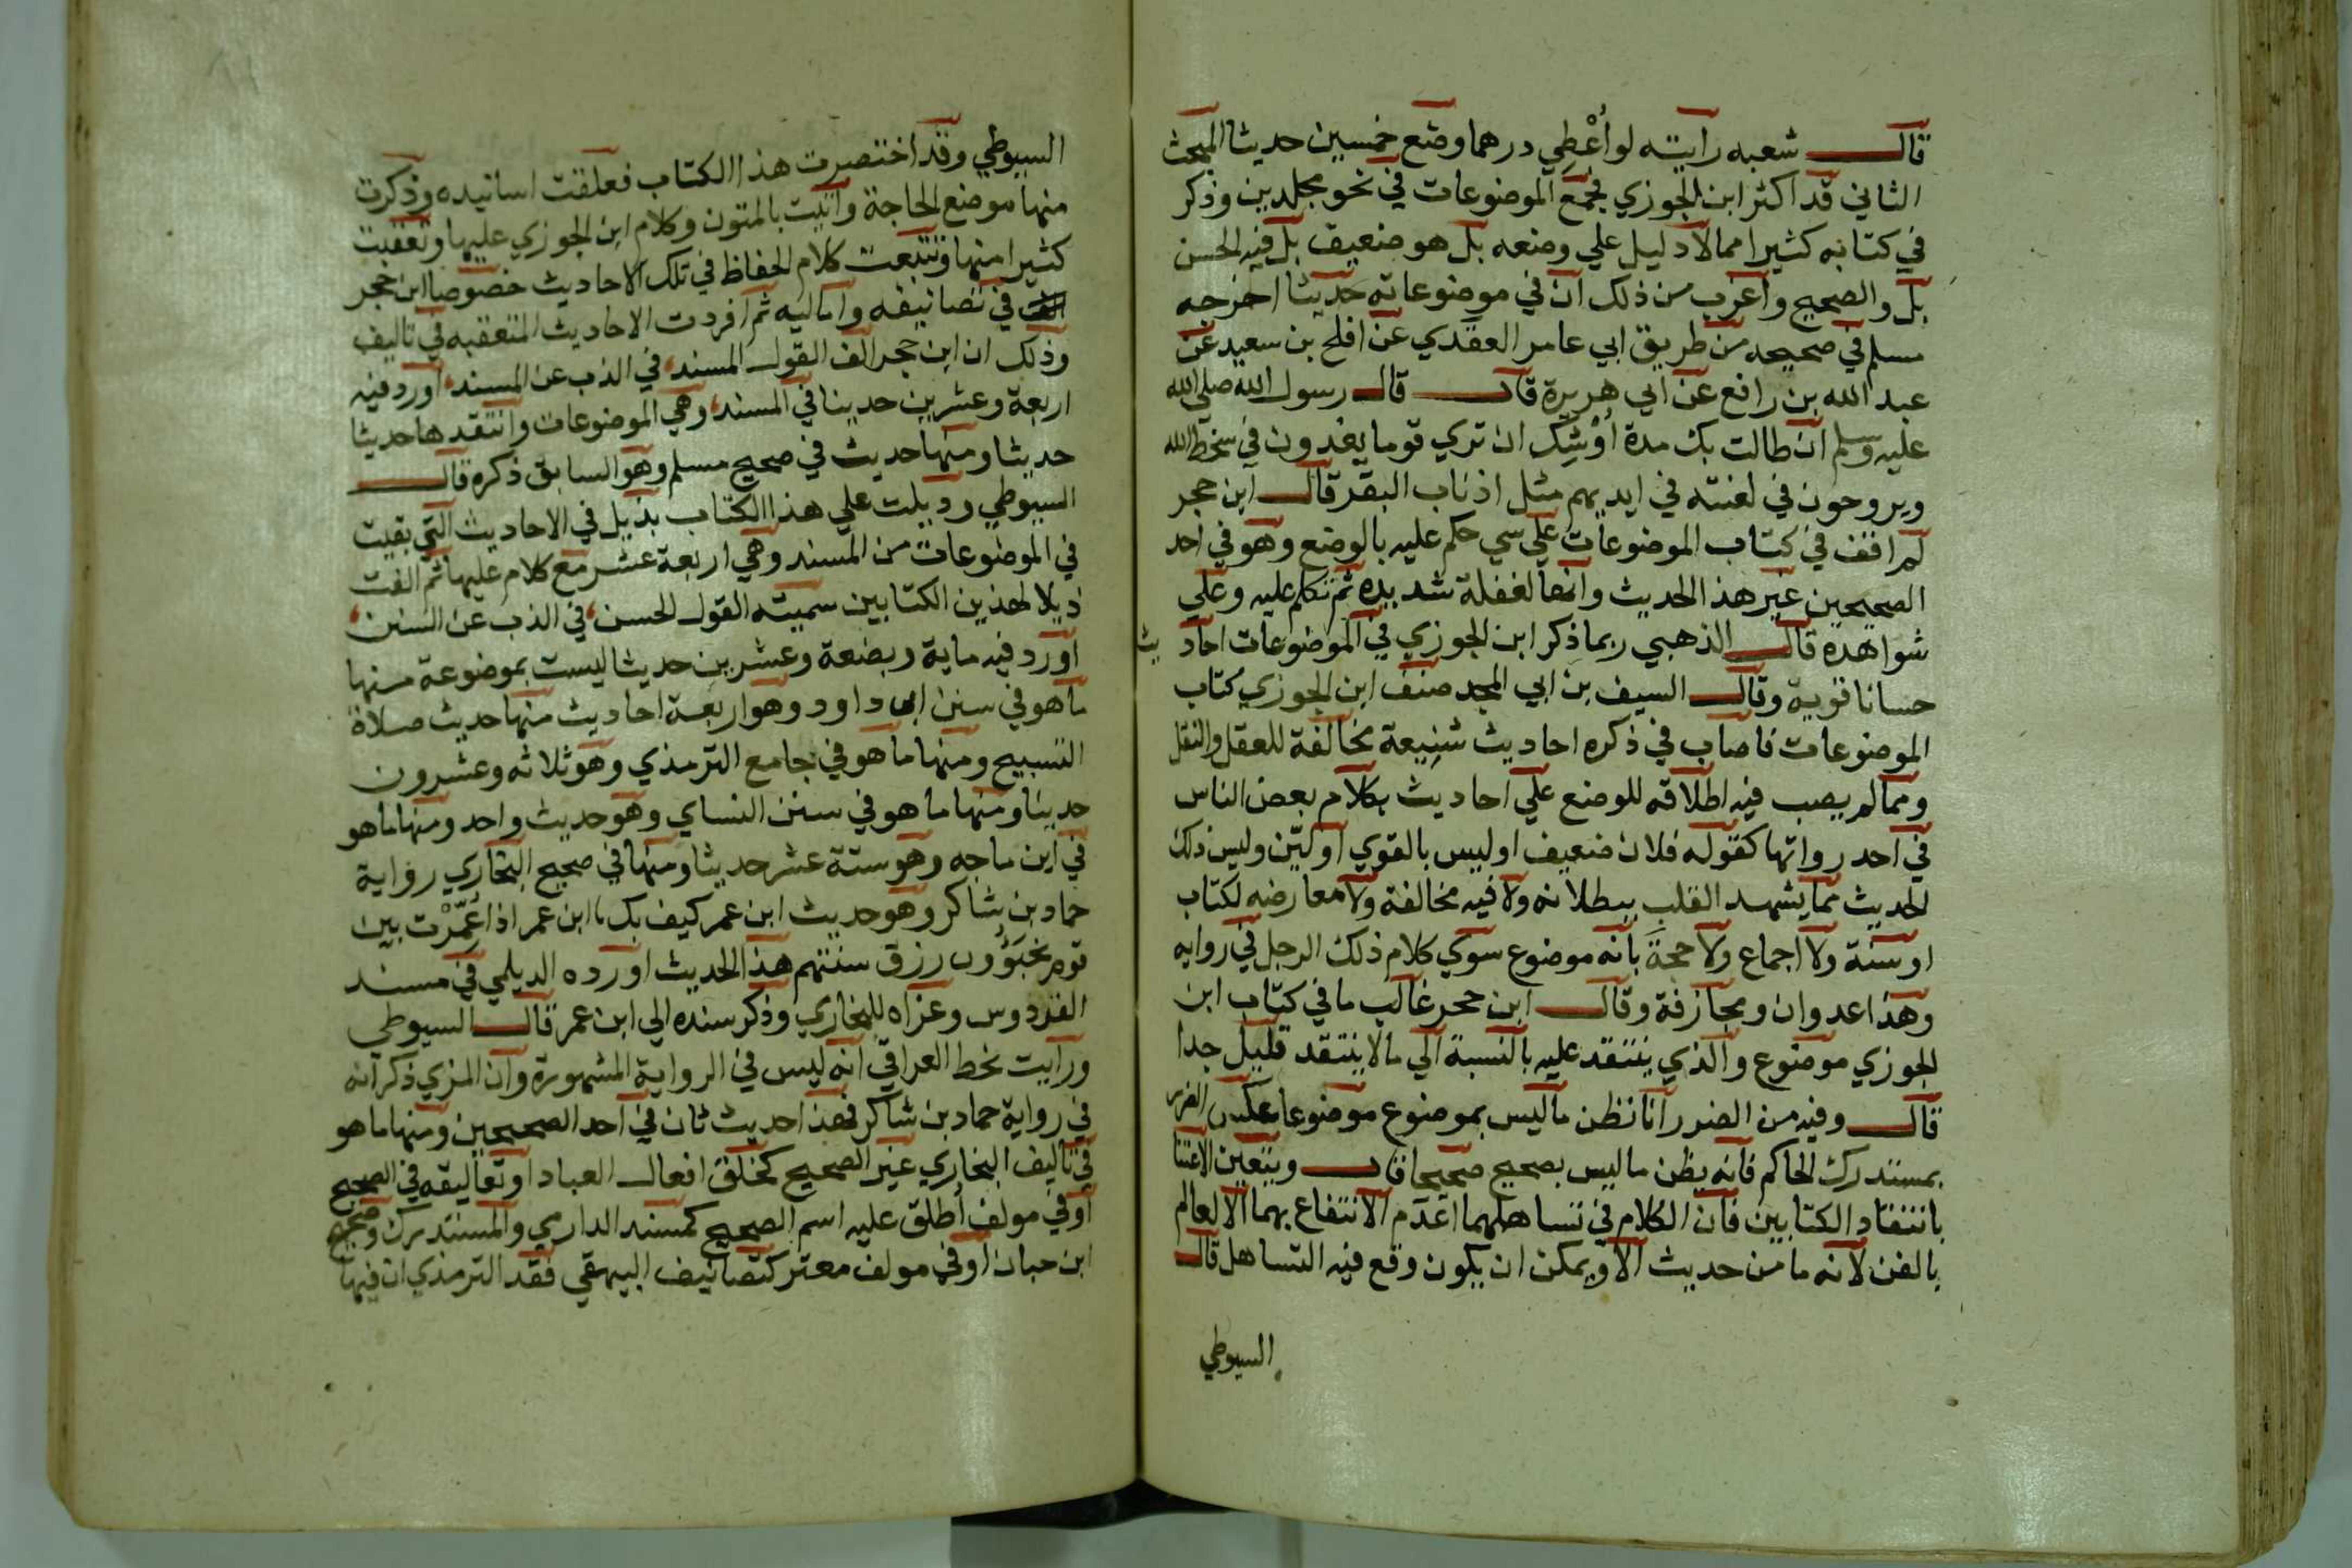 قال شعبه رايته لو أُعْطِي درهما وضع خمسين حديثا المبحث
الثاني قد اكثر ابن الجوزي فجمع الموضوعات في نحو مجلدين وذكر
في كتابه كثيرا مما لا دليل علي وضعه بل هو ضعيف بل فيه الحسن
بل والصحيح واغرب من ذلك ان في موضوعاته حديثا اخرجه
مسلم في صحيحه من طريق ابي عامر العقدي عن افلح بن سعيد عن
عبد الله بن رافع عن ابي هريرة قال قال رسول الله صلي الله
عليه وسلم ان طالت بك مدة أَوْشَكَ ان تري قوما يغدون في سخط الله
ويروحون في لعنته في ايديهم مثل اذناب البقر قال ابن حجر
لم اقف في كتاب الموضوعات علي سي حكم عليه بالوضع وهو في احد
الصحيحين غير هذا الحديث وانها لغفلة شديدة ثم تكلم عليه وعلي
شواهده قال الذهبي ربما ذكر ابن الجوزي في الموضوعات احاديث
حسانا قوية وقال السيف بن ابي المجد صنف ابن الجوزي كتاب
الموضوعات فاصاب في ذكره احاديث شَنِيعة مخالفة للعقل والنقل
ومما لم يصب فيه اطلاقه للوضع علي احاديث بكلام بعض الناس
في احد رواتها كقوله فلان ضعيف او ليس بالقوي او ليّن وليس ذلك
الحديث مما يشهد القلب ببطلانه ولا فيه مخالفة ولا معارضه لكتاب
او سنة ولا اجماع ولا حجةَ بانه موضوع سوي كلام ذلك الرجل في روايه
وهذا عدوان ومجازفة وقال ابن حجر غالب ما في كتاب ابن
الجوزي موضوع والذي ينتقد عليه بالنسبة الي ما لا ينتقد قليل جدا
قال وفيه من الضرر انا نظن ما ليس بموضوع موضوعا عكس الضرر
بمستدرك الحاكم فانه يظن ما ليس بصحيح صحيحا قال ويتعين الاعتنا
بانتقاد الكتابين فان الكلام في تساهلهما اعدم الانتفاع بهما الا لعالم
بالفن لانه ما من حديث الا ويمكن ان يكون وقع فيه التساهل قال
السيوطي
السيوطي وقد اختصرت هذا الكتاب فعلقت اسانيده وذكرت
منها موضع الحاجة واتيت بالمتون وكلام ابن الجوزي عليها وتعقبت
كثيرا منها وتتبعت كلام الحفاظ في تلك الاحاديث خصوصا ابن حجر
في تصانيفه واماليه ثم افردت الاحاديث المتعقبه في تاليف
وذلك ان ابن حجر الف القول المسند في الذب عن المسند اورد فيه
اربعة وعشرين حديثا في المسند وهي الموضوعات وانتقدها حديثا
حديثا ومنها حديث في صحيح مسلم وهو السابق ذكره قال
السيوطي وديلت علي هذا الكتاب بذيل في الاحاديث التي بقيت
في الموضوعات من المسند وهي اربعة عشر مع كلام عليها ثم الفت
ذيلا لهذين الكتابين سميته القول الحسن في الذب عن السنن
اورد فيه ماية وبضعة وعشرين حديثا ليست بموضوعة منها
ما هو في سنن ابي داود وهو اربعة احاديث منها حديث صلاة
التسبيح ومنها ما هو في جامع الترمذي وهو ثلاثه وعشرون
حديثا ومنها ما هو في سنن النساي وهو حديث واحد ومنها ما هو
في ابن ماجه وهو ستة عشر حديثا ومنها في صحيح البخاري رواية
حماد بن شاكر وهو حديث ابن عمر كيف بك يا ابن عمر اذا عُمِّرْت بين
قوم يخبَؤُون رزق سنتهم هذا الحديث اورده الديلمي في مسند
الفردوس وعزاه للبخاري وذكر سنده الي ابن عمر قال السيوطي
ورايت بخط العراقي انه ليس في الرواية المشهورة وان المزي ذكر انه
في رواية حماد بن شاكر فهذا حديث ثان في احد الصحيحين ومنها ما هو
في تاليف البخاري غير الصحيح كخلق افعال العباد او تعاليقه في الصحيح
او في مولف أطلق عليه اسم الصحيح كمسند الدارمي والمستدرك وصحيح
ابن حبان او في مولف معتبر كتصانيف البيهقي فقد الترمذي ان فيها